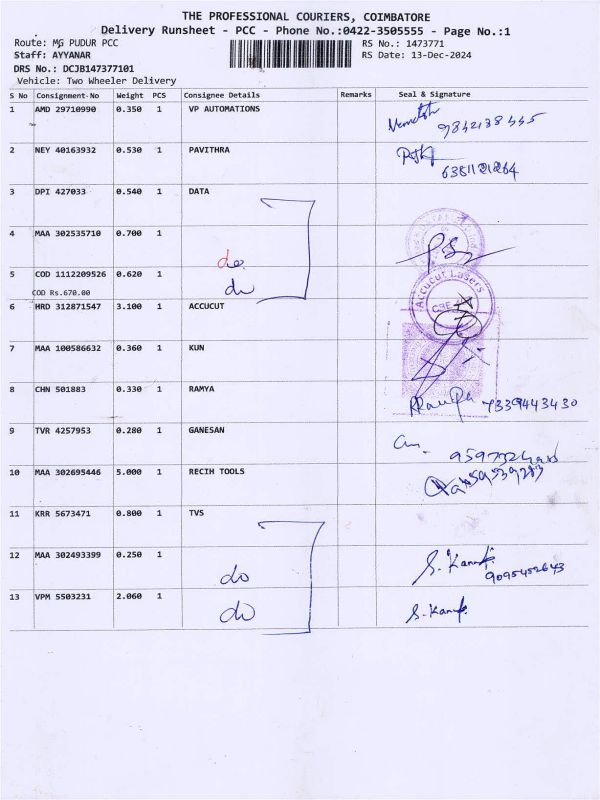 THE PROFESSIONAL COURIERS, COIMBATORE
Delivery Runsheet - PCC - Phone No.:0422-3505555 - Page No.:1
Route: MG PUDUR PCC
RS No.: 1473771
Staff: AYYANAR
RS Date: 13-Dec-2024
DRS No.: DCJB147377101
Vehicle: Two Wheeler Delivery
S No Consignment-No Weight PCS Consignee Details Remarks Seal & Signature
1 AMD 29710990 0.350 1 VP AUTOMATIONS
2 NEY 40163932 0.530 1 PAVITHRA
6381121264
3 DPI 427033 0.540 1 DATA
4 MAA 302535710 0.700 1 do
5 COD 1112209526 0.620 1 do
COD Rs.670.00
Accucut Lasers
CBE
6 HRD 312871547 3.100 1 ACCUCUT
7 MAA 100586632 0.360 1 KUN
8 CHN 501883 0.330 1 RAMYA
Ramya 7339443430
9 TVR 4257953 0.280 1 GANESAN
10 MAA 302695446 5.000 1 RECIH TOOLS
11 KRR 5673471 0.800 1 TVS
12 MAA 302493399 0.250 1 do
9095452643
13 VPM 5503231 2.060 1 do